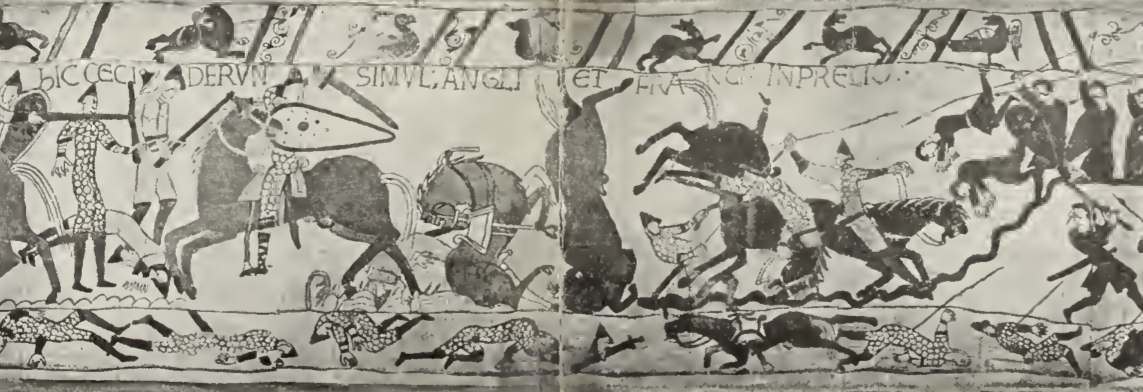 hIC CECIDERVN SIMVL: ANGLI ET FRANCI: IN PRELIO:·